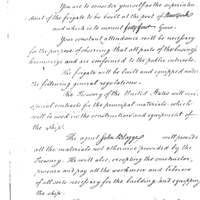 You are to consider yourself as the superinten-
dent of the frigate to be built at the port of New York
and which is to mount forty four Guns.
Your constant attendance will be necessary
for the purpose of observing that all parts of the business
harmonize and are conformed to the public interests.
The frigate will be built and equipped under
the following general regulations.
The Treasury of the United States will make
special contracts for the principal materials which
will be used in the construction and equipment of
the Ship.
The agent John Blagge will provide
all the materials not otherwise provided by the
Treasury. He will also, excepting the constructor,
procure and pay all the workmen and laborers
of all sorts necessary for the building and equipping
the ship.